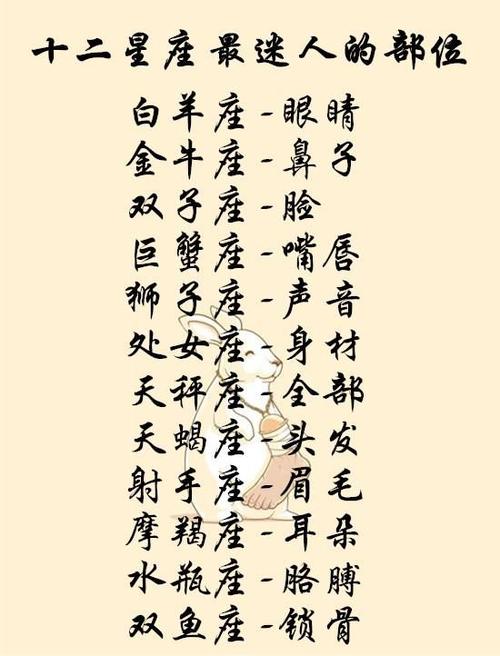 十二星座最迷人的部位
白羊座-眼睛
金牛座-鼻子
双子座-脸
巨蟹座-嘴唇
狮子座-声音
处女座-身材
天秤座-全部
天蝎座-头发
射手座-眉毛
摩羯座-耳朵
水瓶座-胳膊
双鱼座-锁骨